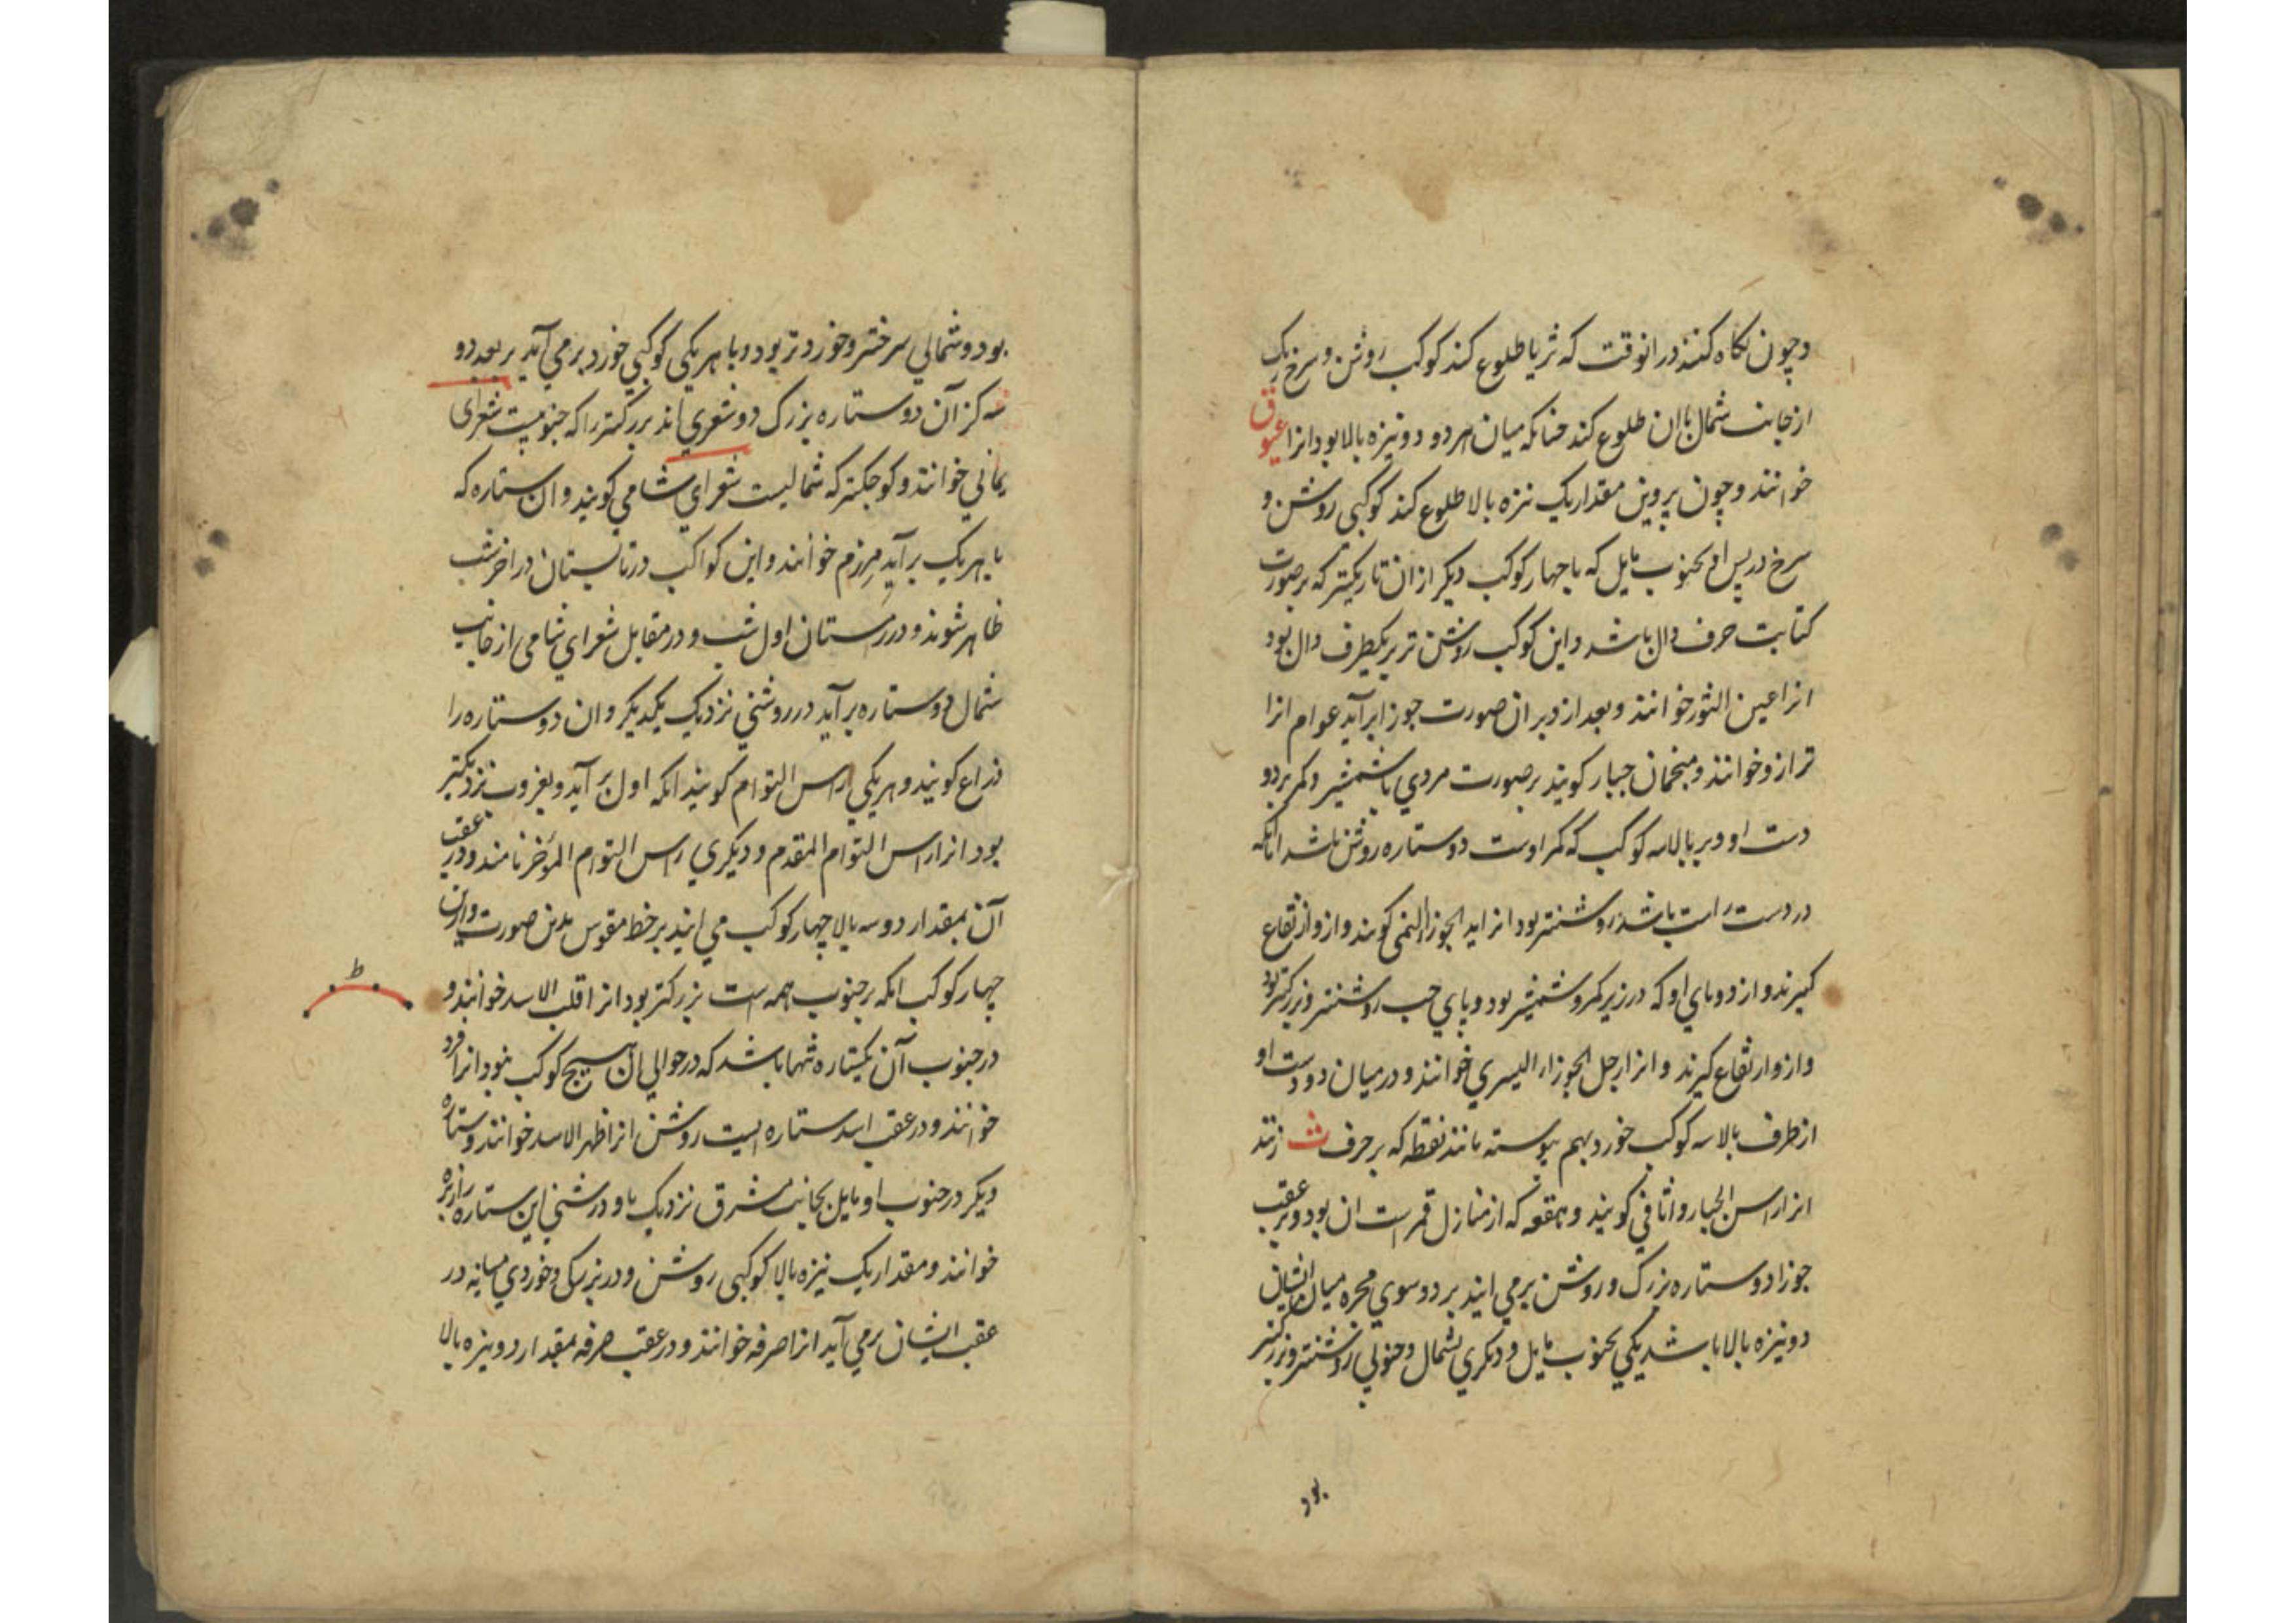 وچون نكاه كنند درانوقت كه ثريا طلوع كند كوكب روشن و سرخ رنك
ازجانب شمال باان طلوع كند چنانكه ميان هر دو دو نيزه بالا بود انرا عيوق
خوانند وچون پروين مقدار يك نيزه بالا طلوع كند كوكبى روشن و
سرخ در پس او بجنوب مايل كه باچهار كوكب ديكر ازان تاريكتر كه برصورت
كتابت حرف دال باشد واين كوكب روشن تر بر يكطرف دال بود
انرا عين الثور خوانند وبعد از دبران صورت جوزا برآيد عوام انرا
ترازو خوانند ومنجمان جبار كويند برصورت مردي باشمشير وكمر بر دو
دست او وبر بالاسه كوكب كه كمر اوست دوستاره روشن باشد انانكه
در دست راست باشد روشنتر بود انرا يد الجوزا اليمنى كويند و ازو ارتفاع
كيرند و از دو پاي او كه در زير كمر وشمشير بود وپاي چپ روشنتر وبزركتر بود
وازو ارتفاع كيرند و انرا رجل الجوزاء اليسري خوانند ودرميان دودست او
ازطرف بالا سه كوكب خورد بهم پيوسته مانند نقطه كه بر حرف ث زنند
انرا راس الجبار واثافي كويند وهقعه كه از منازل قمرست ان بود وبرعقب
جوزا دوستاره بزرك و روشن برمي ايند بر دو سوي مجره ميان ايشان
دو نيزه بالا باشد يكي بجنوب مايل و ديكري بشمال و جنوبي روشنتر وبزركتر
بود
بود و شمالي سرختر وخوردتر بود و با هريكى كوكبي خورد برمي آيد بربعد دو
سه كز آن دو ستاره بزرك دو شعري اند بزركتر را كه جنوبيست شعراى
يماني خوانند وكوچكتر كه شماليست شعراي شامي كويند وان ستاره كه
با هريك برآيد مرزم خوانند واين كواكب درتابستان دراخرشب
ظاهرشوند ودر زمستان اول شب و درمقابل شعراي شامى ازجانب
شمال دوستاره برآيد در روشني نزديك يكديكر وان دوستاره را
ذراع كويند و هريكي راس التوام كويند انكه اول برآيد وبغروب نزديكتر
بود انرا راس التوام المقدم و ديكري راس التوام المؤخر نامند ودر عقب
آن بمقدار دو سه بالا چهار كوكب مي ايند بر خط مقوس بدين صورت وازين
چهار كوكب انكه برجنوب همه است بزركتر بود انرا قلب الاسد خوانند و
درجنوب آن يكستاره تنها باشد كه درحوالي ان هيچ كوكب نبود انرا فرد
خوانند و درعقب اسد ستاره ايست روشن انرا ظهر الاسد خوانند و ستاره
ديكر درجنوب او مايل بجانب مشرق نزديك باو درشني اين ستاره را زبره
خوانند و مقدار يك نيزه بالا كوكبى روشن ودر بزركى وخوردي ميانه در
عقب ايشان برمي آيد انرا صرفه خوانند و درعقب صرفه بمقدار دو نيزه بالا
ط